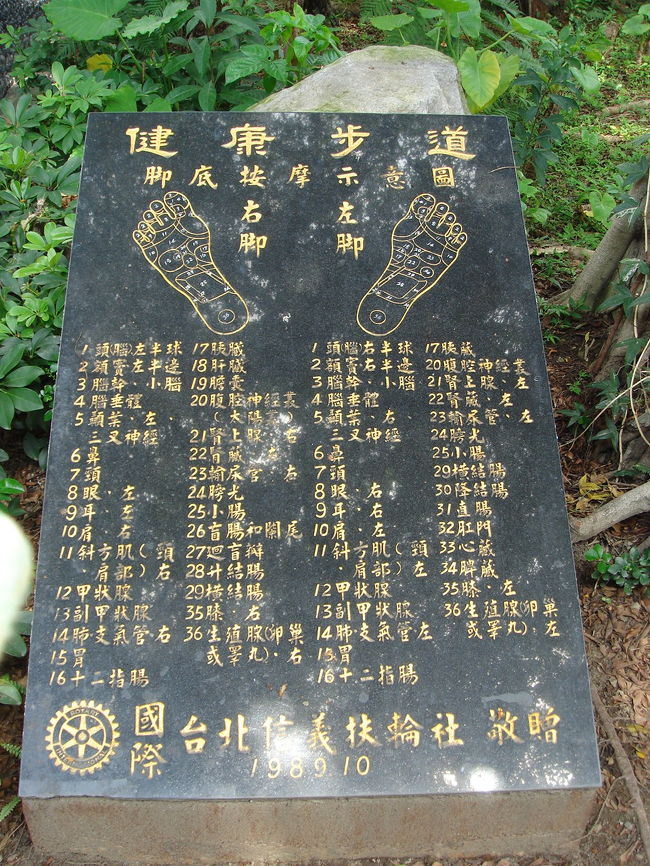 健康步道
脚底按摩示意圖
右脚
左脚
1頭(腦)左半球
2額竇左半邊
3腦幹、小腦
4腦垂體
5顳葉、左
三叉神經
6鼻
7頸
8眼、左
9耳、左
10肩、右
11斜方肌(頸
肩部)右
12甲狀腺
13副甲狀腺
14肺支氣管右
15胃
16十二指腸
17胰臟
18肝臟
19膽囊
20腹腔神經叢
(太陽叢)
21腎上腺、右
22腎臟、右
23輸尿管右
24膀光
25小腸
26盲腸和闌尾
27廻盲瓣
28升結腸
29橫結腸
35膝、右
36生殖腺(卵巢
或睪丸)、右
1頭(腦)右半球
2額竇右半邊
3腦幹、小腦
4腦垂體
5顳葉、右
三叉神經
6鼻
7頸
8眼、右
9耳、右
10肩、左
11斜方肌(頸
肩部)左
12甲狀腺
13副甲狀腺
14肺支氣管左
15胃
16十二指腸
17胰臟
20腹腔神經叢
21腎上腺、左
22腎臟、左
23輸尿管、左
24膀光
25小腸
29橫結腸
30降結腸
31直腸
32肛門
33心臟
34脾臟
35膝、左
36生殖腺(卵巢
或睪丸)、左
國際
台北信義扶輪社 敬贈
1989 10